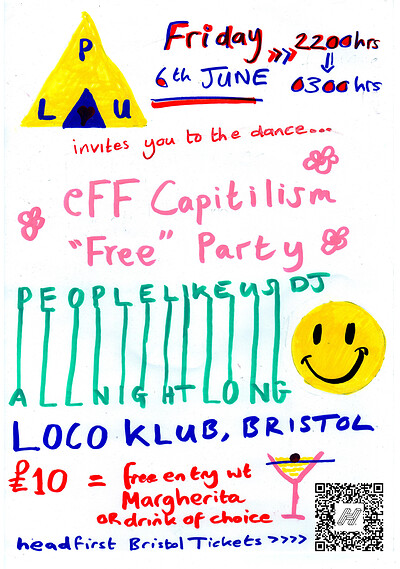 P
L U
Friday >>> 2200hrs
6th JUNE 0300hrs
invites you to the dance...
eFF Capitilism
"Free" Party
PEOPLELIKEUS DJ
ALL NIGHT LONG
LOCO KLUB, BRISTOL
£10 = free entry wt
Margherita
OR drink of choice
headfirst Bristol Tickets >>>>